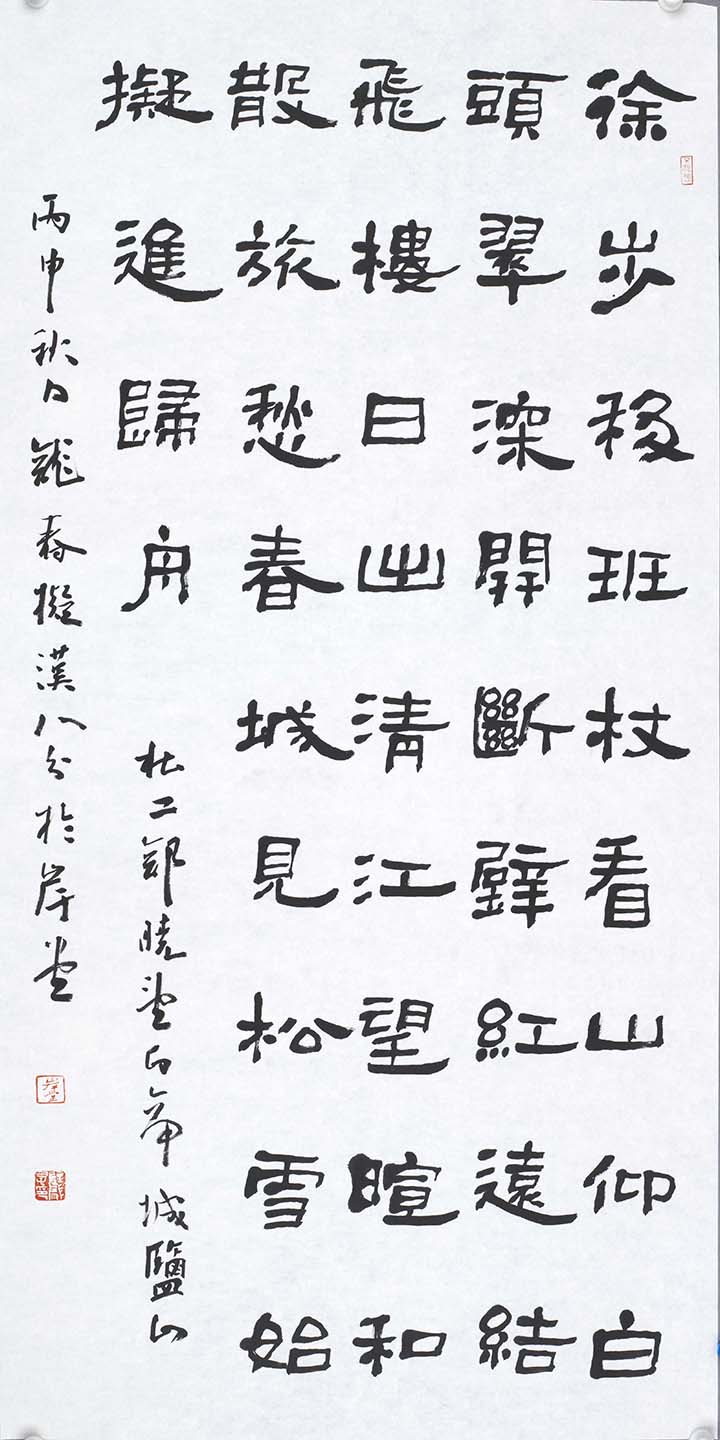 徐步移班杖看山仰白
頭翠深開斷壁紅遠結
飛樓日出清江望暄和
散旅愁春城見松雪始
擬進歸舟
杜工部曉望白帝城鹽山
丙申秋日龍春擬漢八分於岸堂
岸堂